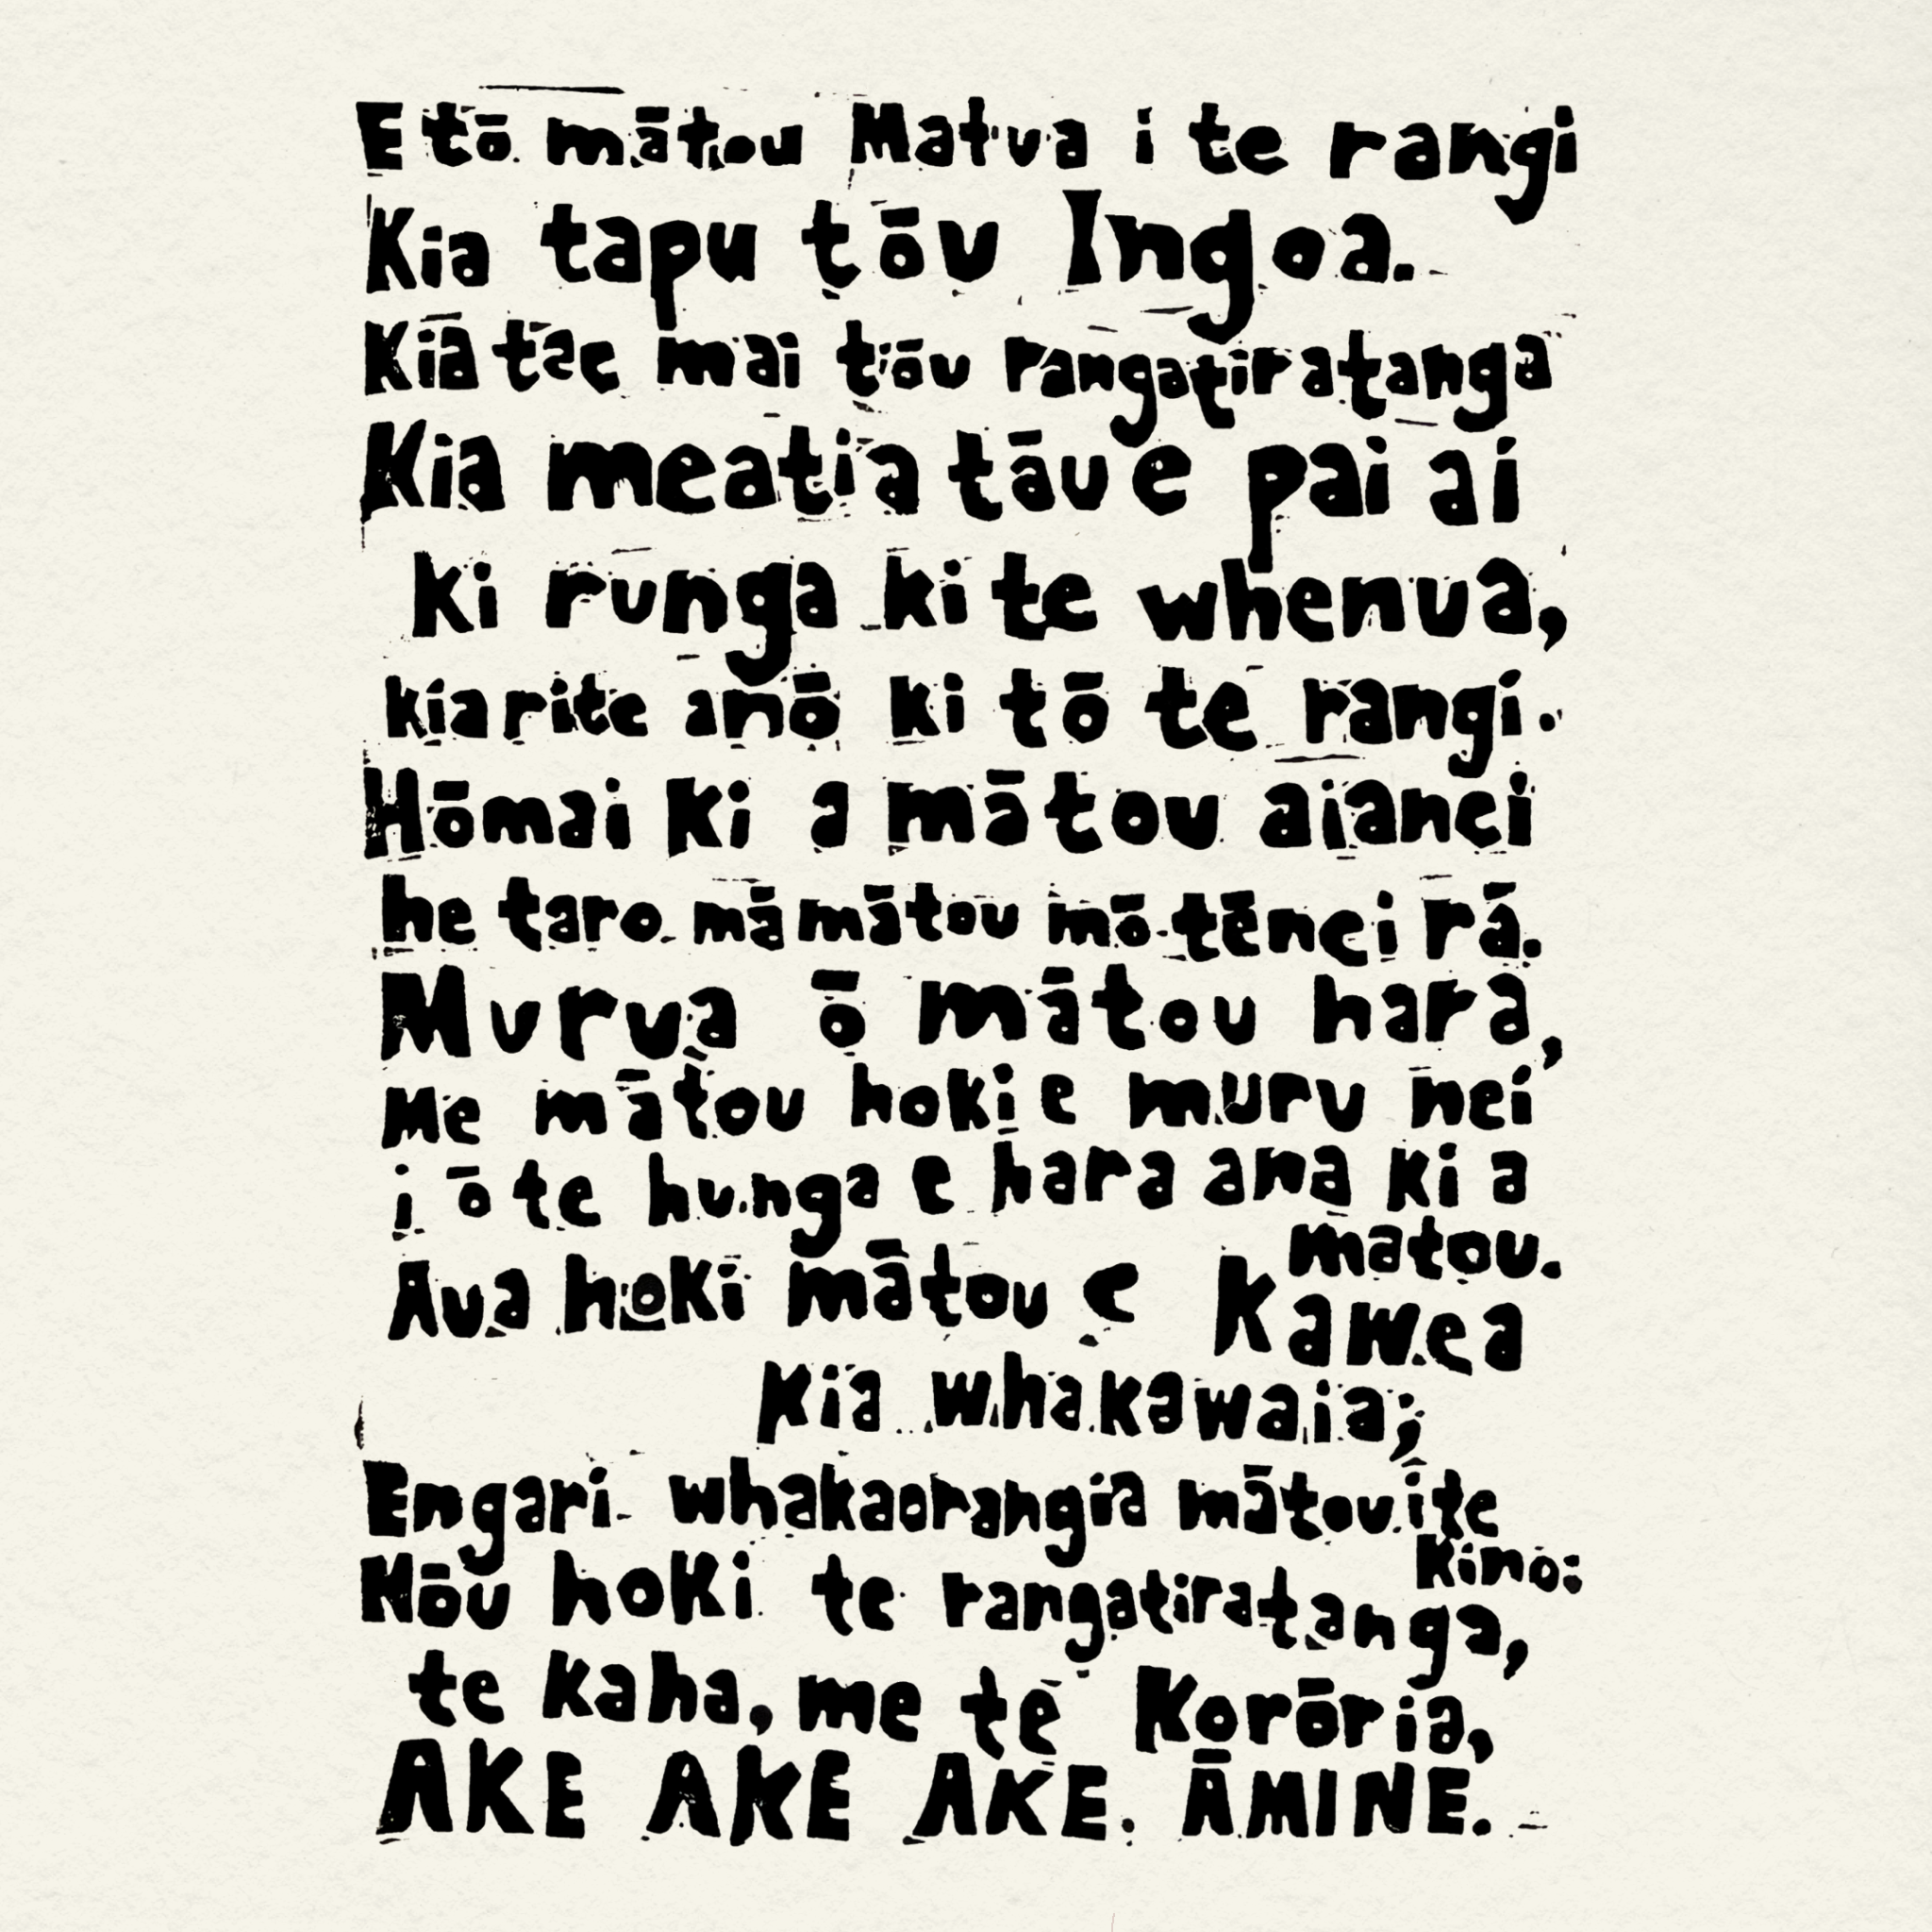 E tō mātou Matua i te rangi
Kia tapu tōu Ingoa.
Kia tae mai tōu rangatiratanga
Kia meatia tāu e pai ai
ki runga ki te whenua,
kia rite anō ki tō te rangi.
Hōmai ki a mātou aianei
he taro mā mātou mō tēnei rā.
Murua ō mātou hara,
Me mātou hoki e muru nei
i ō te hunga e hara ana ki a
mātou.
Aua hoki mātou e Kawea
Kia whakawaia;
Engari whakaorangia mātou i te
Kino:
Nōu hoki te rangatiratanga,
te kaha, me te Korōria,
AKE AKE AKE. ĀMINE.